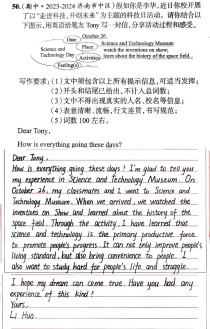 50.(期中·2023-2024济南市中区)假如你是李华,近日你校开展
了以“走进科技,开创未来”为主题的科技日活动。请你结合以
下图示,用英语给笔友 Tony 写一封信,分享活动过程和感受。
Science and
Technology Day
Date
October 26
Place
Science and Technology Museum
Activities
watch the inventions on show;
learn about the history of the space field.
Feeling(s)
写作要求:(1)文中须包含以上所有提示信息,可适当发挥;
(2)开头和结尾已给出,不计入总词数;
(3)文中不得出现真实的人名、校名等信息;
(4)表意清晰、流畅,行文连贯,书写规范;
(5)词数 100 左右。
Dear Tony,
How is everything going these days?
Dear Tony,
How is everything going these days? I'm glad to tell you
my experience in Science and Technology Museum. On
October 26, my classmates and I went to Science and
Technology Museum. When we arrived, we watched the
inventions on Show and learned about the history of the
space field. Through the activity, I have learned that
science and technology is the primary productive force
to promote people's progress. It can not only improve people's
living standard, but also bring convenience to people. I
also want to study hard for people's life and struggle.
I hope my dream can come true. Have you had any
experience of this kind?
Yours,
Li Hua.